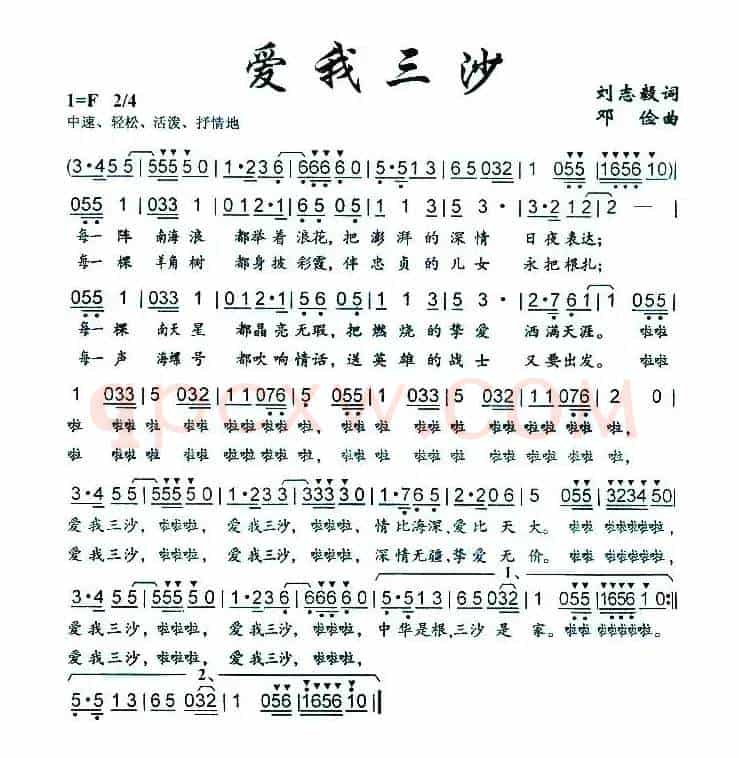 爱我三沙
1=F 2/4
刘志毅词
中速、轻松、活泼、抒情地
邓 俭曲
(3·455|55550|1·236|66660|5·513|65032|1 055|165610)|
055 1|033 1|012·1|65 05|1 13|5 3·|3·212|2 —|
每一 阵 南海 浪 都举着 浪花，把 澎 湃的 深 情 日夜表 达；
每一 棵 羊角 树 都身披 彩霞，伴 忠 贞的 儿 女 永把根 扎；
055 1|033 1|012·1|65 05|1 13|5 3·|2·761|1 055|
每一 棵 南天 星 都晶亮 无瑕，把 燃 烧的 挚 爱 洒满天 涯。 啦啦
每一 声 海螺 号 都吹响 情话，送 英 雄的 战 士 又要出 发。 啦啦
1 033|5 032|11076|5 055|1 033|5 032|11076|2 0|
啦 啦啦 啦 啦啦 啦啦啦啦 啦， 啦啦 啦 啦啦 啦 啦啦 啦啦啦啦 啦，
啦 啦啦 啦 啦啦 啦啦啦啦 啦， 啦啦 啦 啦啦 啦 啦啦 啦啦啦啦 啦，
3·455|55550|1·233|33330|1·765|2·206|5 055|323450|
爱 我三沙， 啦啦啦， 爱 我三沙， 啦啦啦， 情 比海深，爱 比 天 大。 啦啦 啦啦啦啦，
爱 我三沙， 啦啦啦， 爱 我三沙， 啦啦啦， 深 情无疆，挚 爱 无 价。 啦啦 啦啦啦啦，
1、
3·455|55550|1·236|66660|5·513|65032|1 055|165610:||
爱 我三沙， 啦啦啦， 爱 我三沙， 啦啦啦， 中 华是根，三沙 是 家。 啦啦 啦啦啦啦。
爱 我三沙， 啦啦啦， 爱 我三沙， 啦啦啦，
2、
5·513|65 032|1 055|165610||
qpcxw.COM